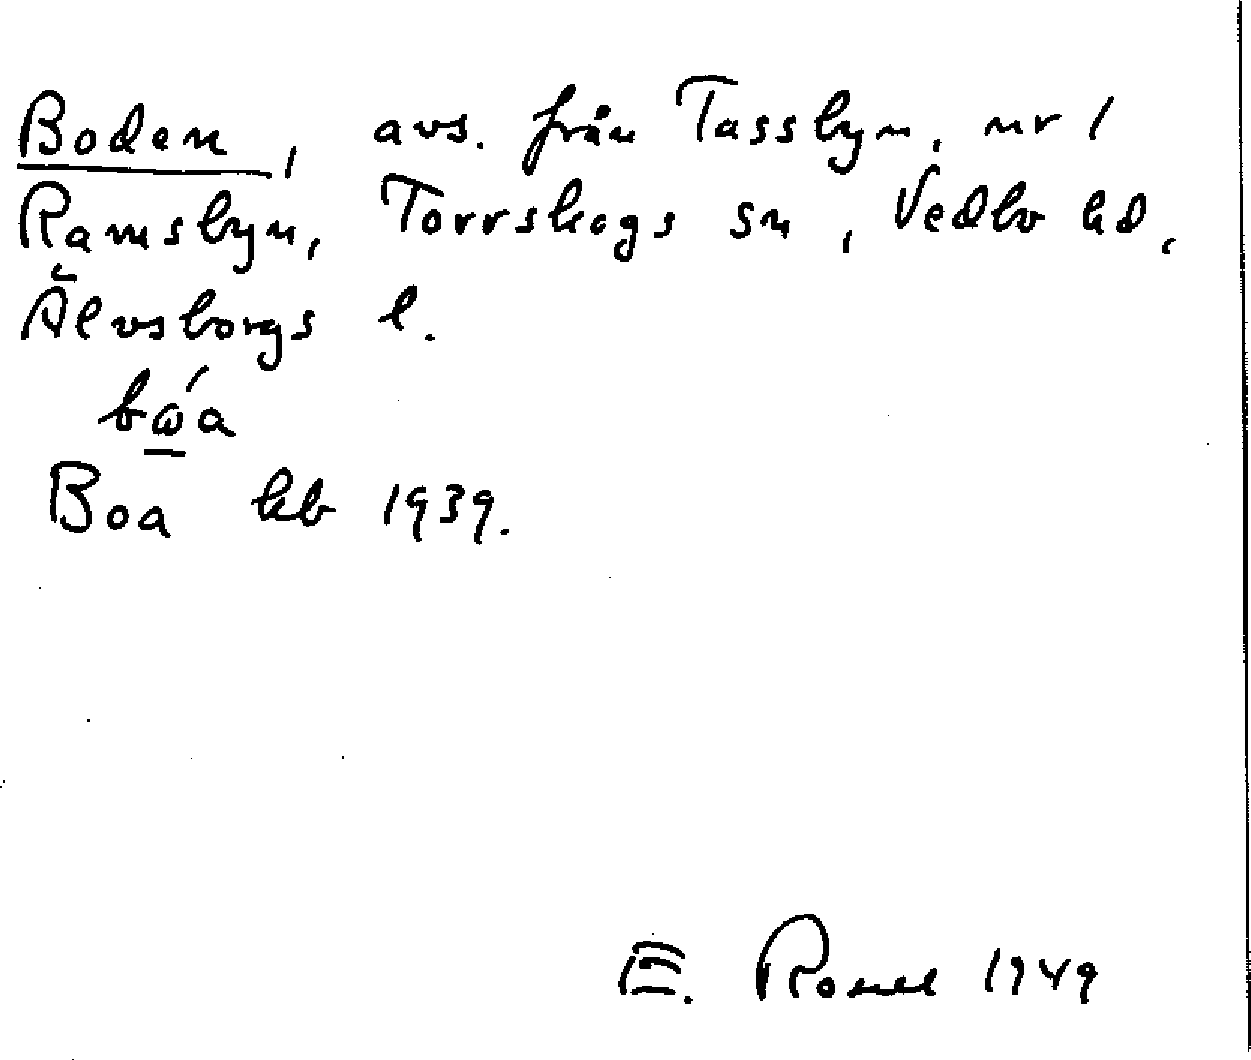 Boden, avs. från Tassbyn, nr 1
Ramsbyn, Torrskogs sn, Vedbo hd,
Älvsborgs l.
bώ̲a
Boa kb 1939.
E. Rosell 1949